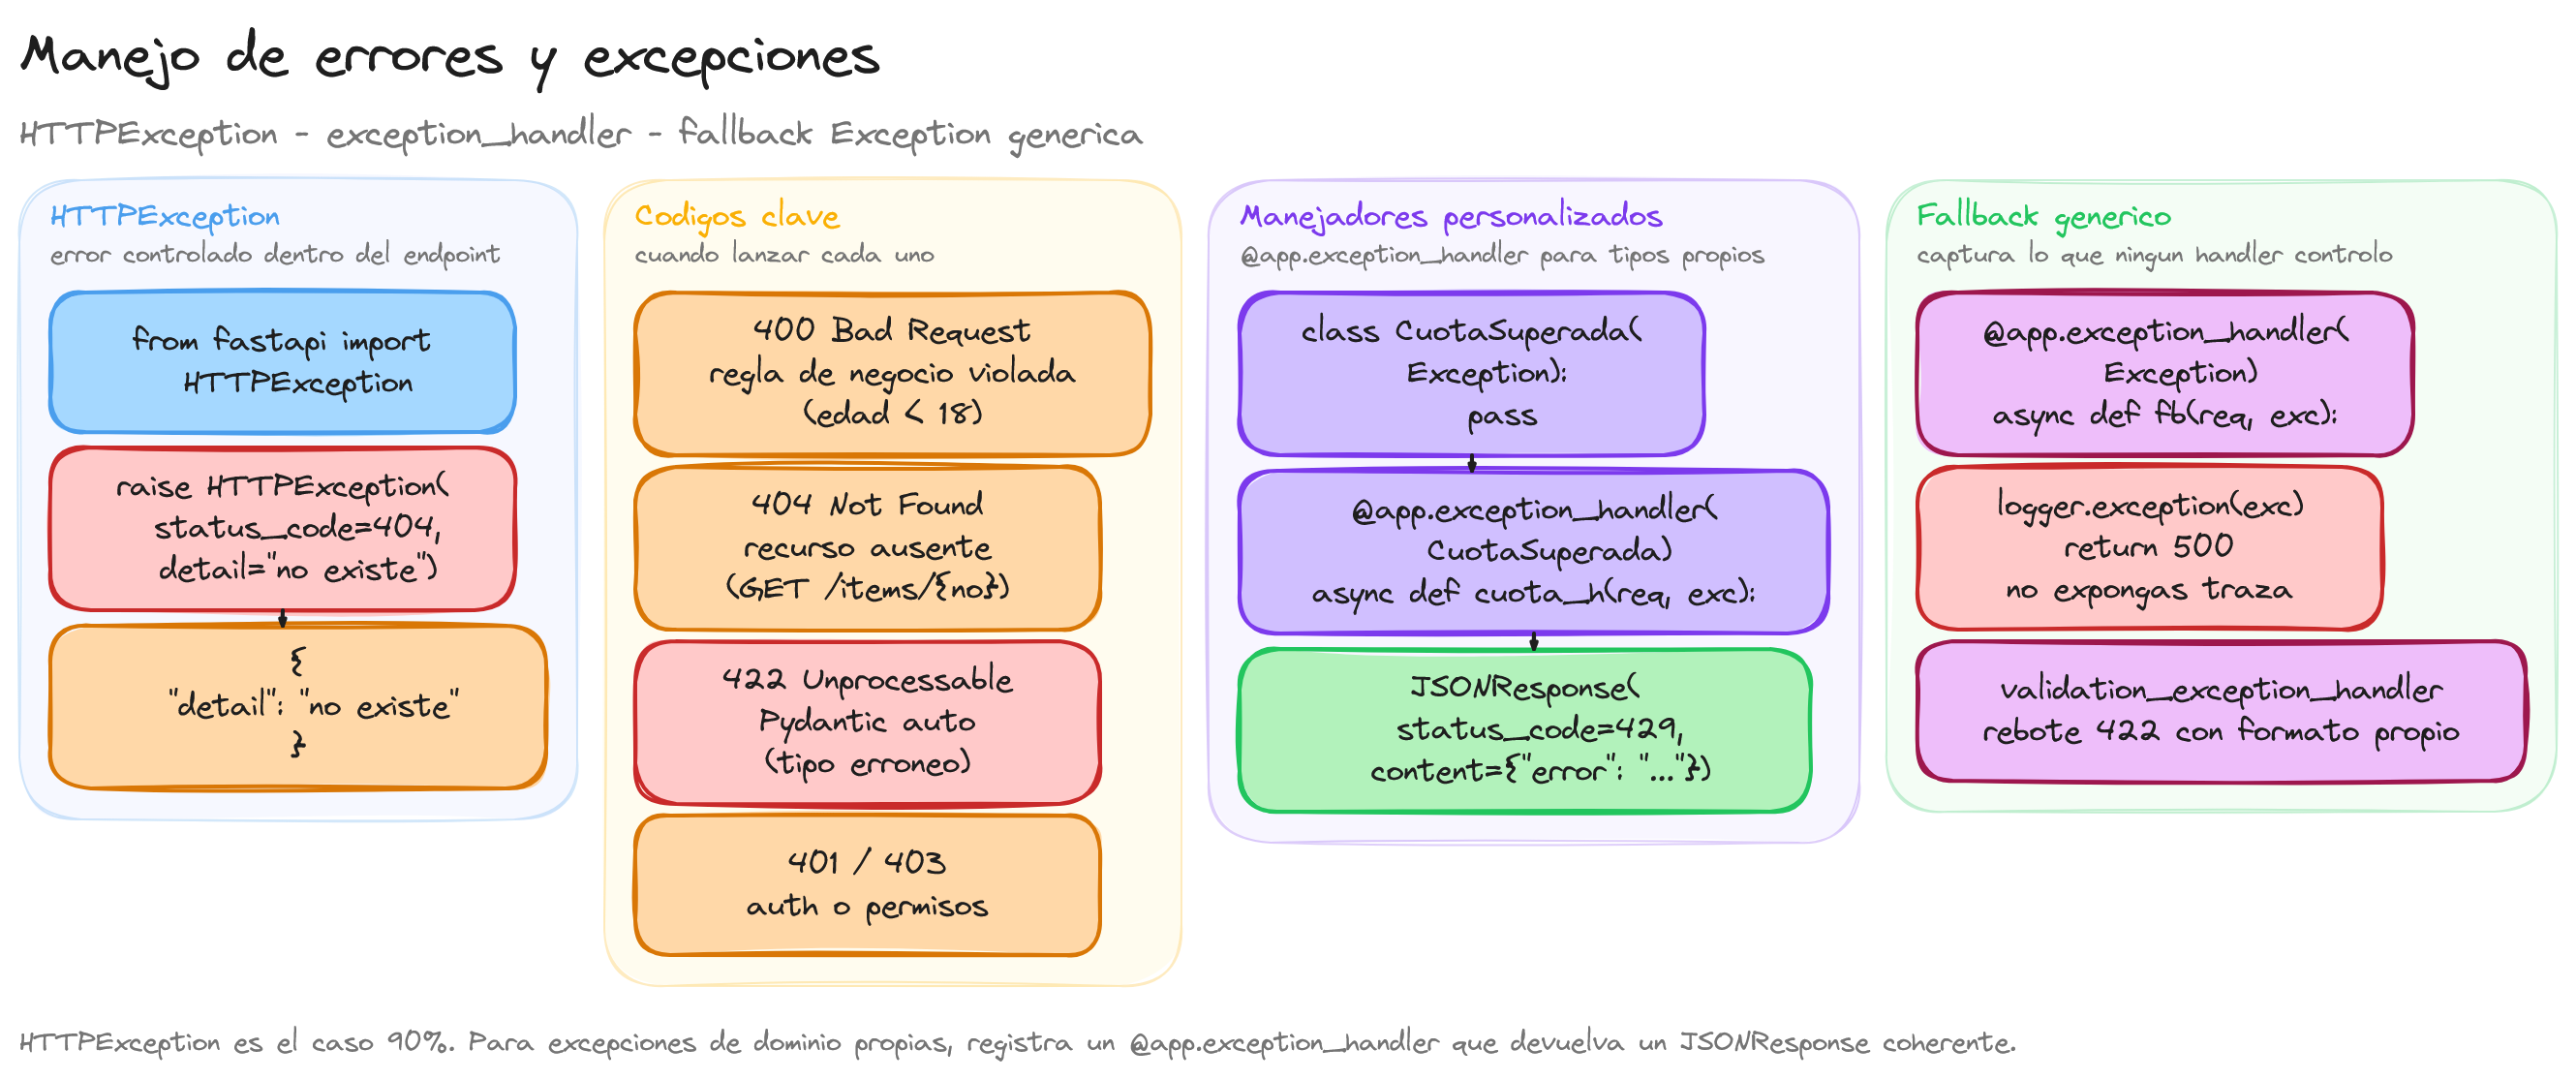 Manejo de errores y excepciones
HTTPException - exception_handler - fallback Exception generica
HTTPException
error controlado dentro del endpoint
from fastapi import
HTTPException
raise HTTPException(
status_code=404,
detail="no existe")
{
"detail": "no existe"
}
Codigos clave
cuando lanzar cada uno
400 Bad Request
regla de negocio violada
(edad < 18)
404 Not Found
recurso ausente
(GET /items/{no})
422 Unprocessable
Pydantic auto
(tipo erroneo)
401 / 403
auth o permisos
Manejadores personalizados
@app.exception_handler para tipos propios
class CuotaSuperada(
Exception):
pass
@app.exception_handler(
CuotaSuperada)
async def cuota_h(req, exc):
JSONResponse(
status_code=429,
content={"error": "..."})
Fallback generico
captura lo que ningun handler controlo
@app.exception_handler(
Exception)
async def fb(req, exc):
logger.exception(exc)
return 500
no expongas traza
validation_exception_handler
rebote 422 con formato propio
HTTPException es el caso 90%. Para excepciones de dominio propias, registra un @app.exception_handler que devuelva un JSONResponse coherente.